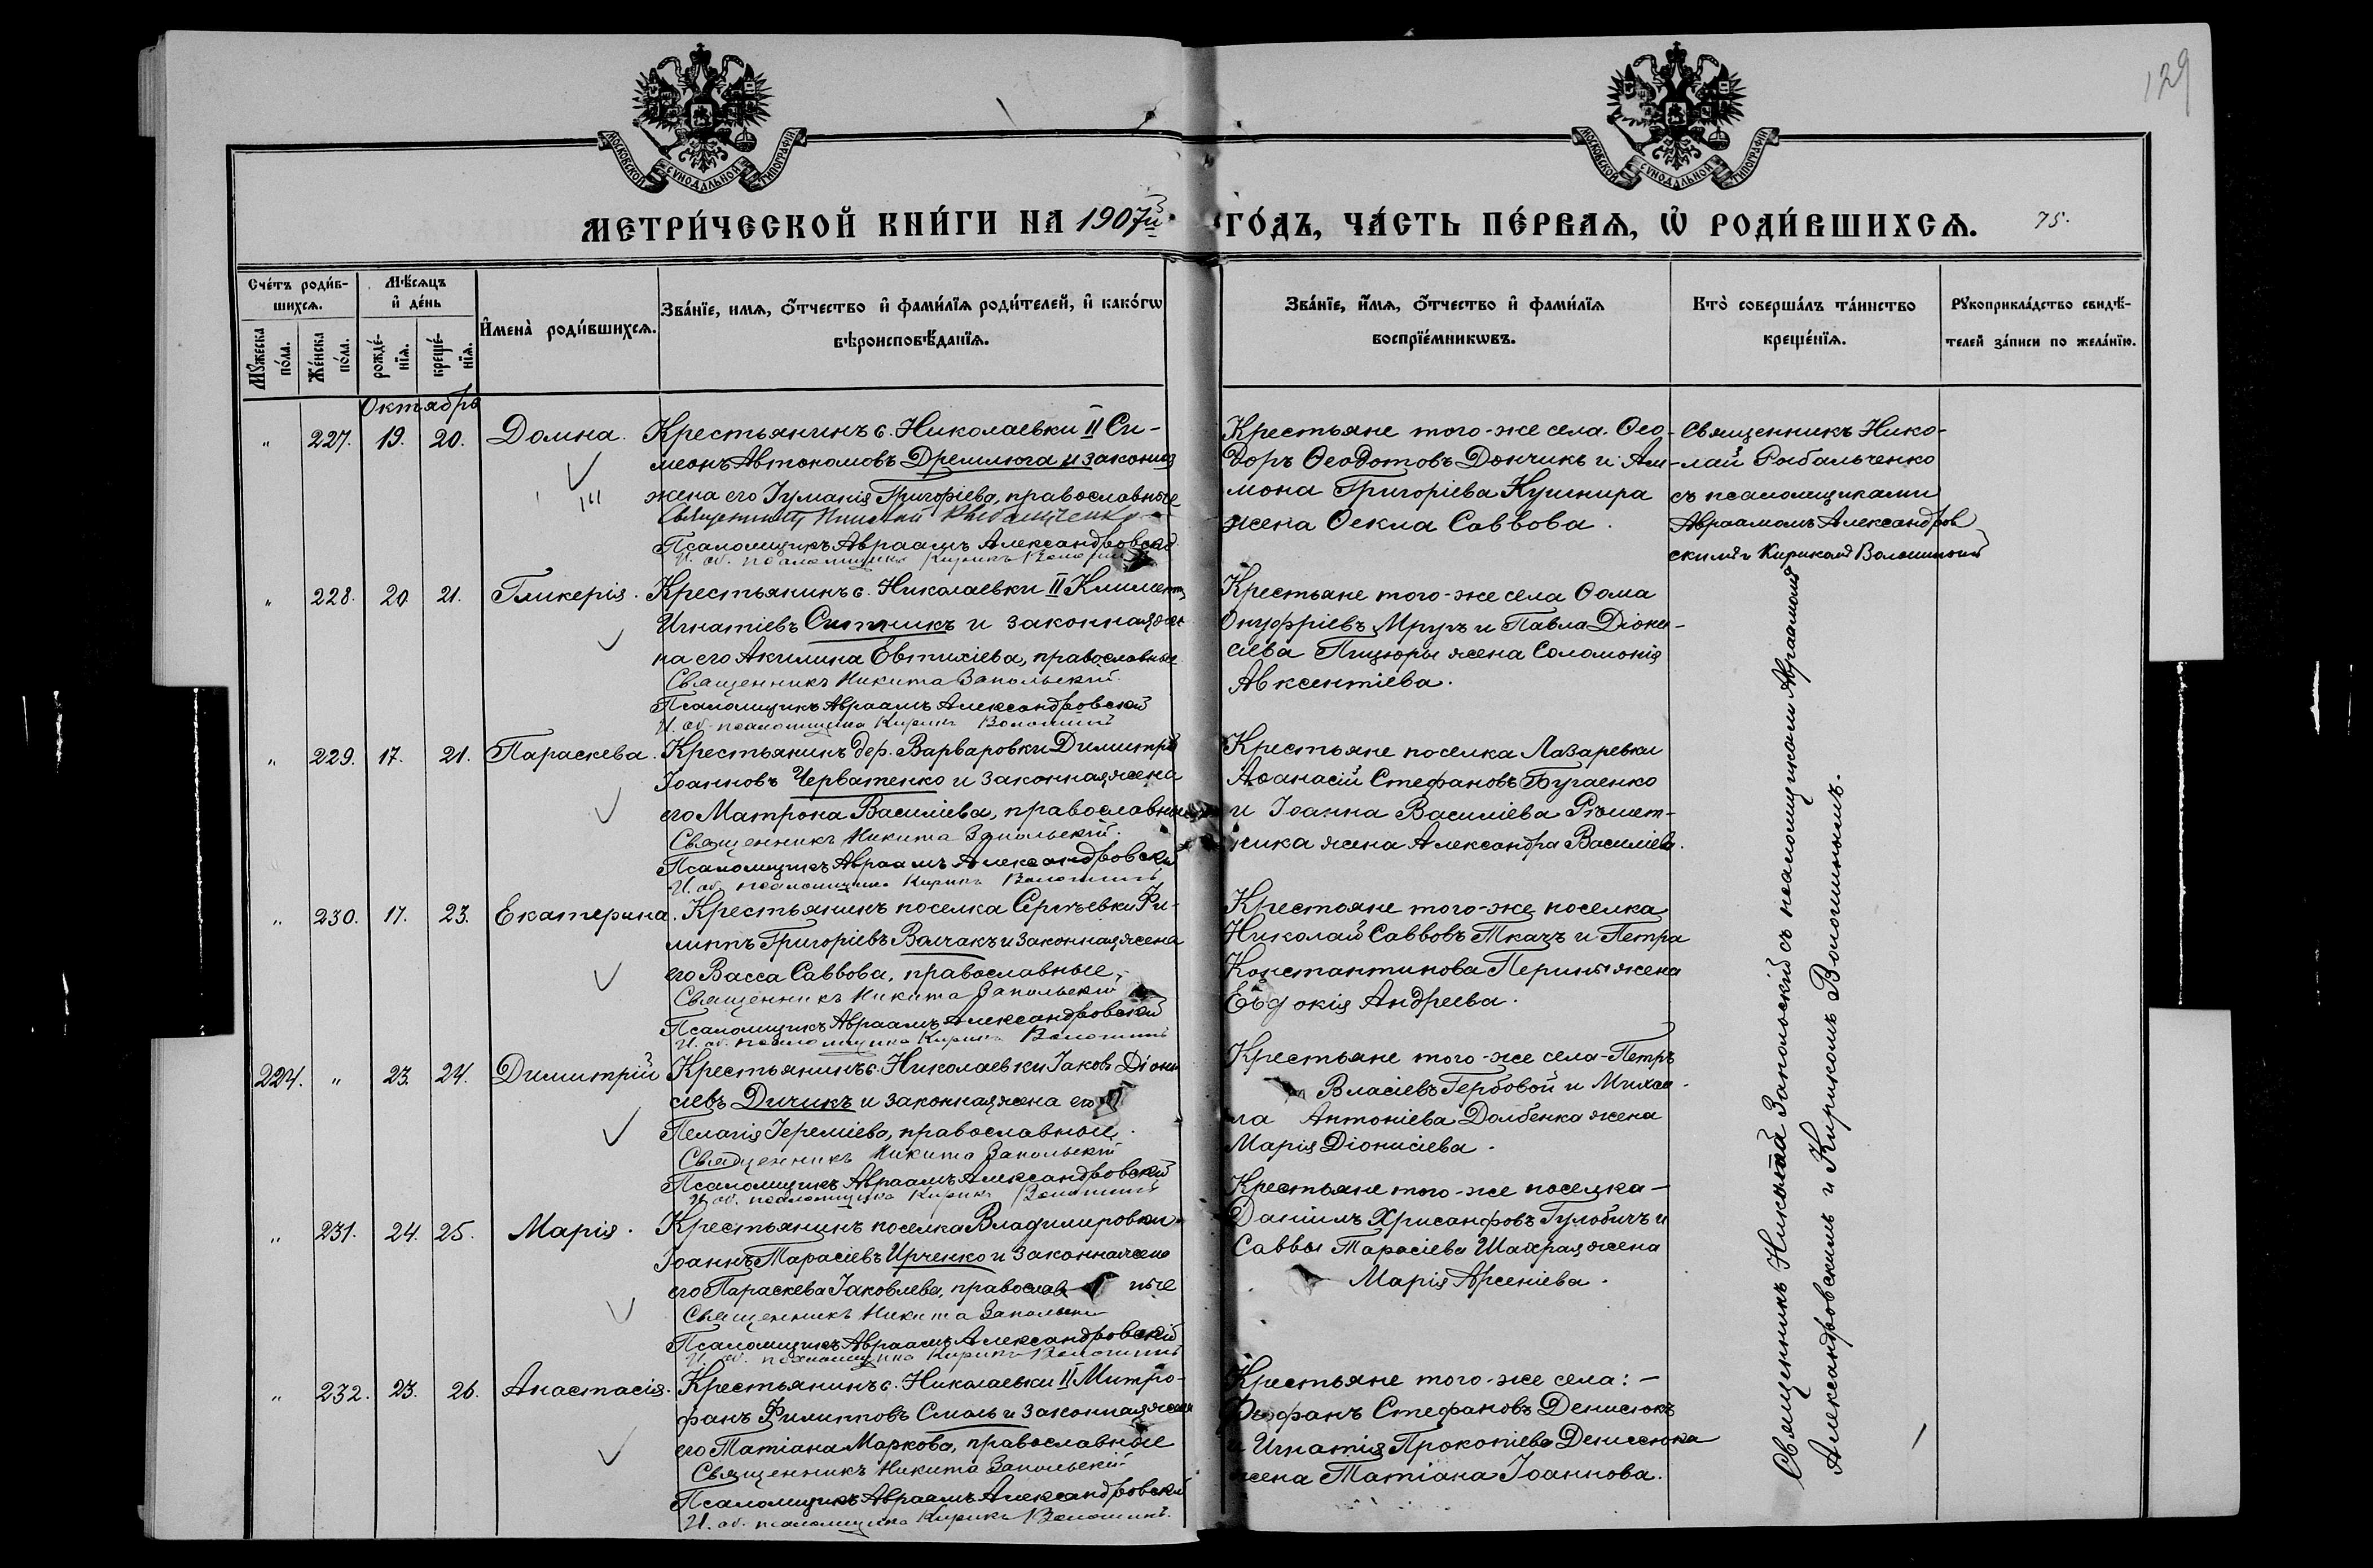 129
МОСКОВСКОЙ СУНОДАЛЬНОЙ ТИПОГРАФІИ
МОСКОВСКОЙ СУНОДАЛЬНОЙ ТИПОГРАФІИ
МЕТРИ́ЧЕСКОЙ КНИ́ГИ НА 1907й ГО́ДЪ, ЧА́СТЬ ПЕ́РВАѦ, Ѡ҆ РОДИ́ВШИХСѦ. 75.
Сче́тъ роди́вшихсѧ.
Мꙋ́жеска по́ла.
Же́нска по́ла.
Мѣ́сѧцъ и҆ де́нь
рожде́нїѧ.
креще́нїѧ.
И҆мена̀ роди́вшихсѧ.
Зва́нїе, имѧ, ѻ҆́тчество и҆ фами́лїѧ роди́телей, и҆ како́гѡ
вѣроисповѣ́данїѧ.
Зва́нїе, и҆́мѧ, ѻ҆́тчество и҆ фами́лїѧ
воспрїе́мникѡвъ.
Кто̀ соверша́лъ та́инство
креще́нїѧ.
Рꙋкоприкла́дство свидѣ́-
телей за́писи по жела́нїю.
Октябрь
" 227. 19. 20. Домна. Крестьянинъ с. Николаевки II Си-
меонъ Автономовъ Дремлюга и законная
жена его Іуманія Григоріева, православные
Священникъ Николай Рыбальченко
Псаломщикъ Авраамъ Александровскій
И. об. псаломщика Кирикъ Волошинъ
Крестьяне того-же села Ѳео-
доръ Ѳеодотовъ Дончикъ и Ам-
мона Григоріева Кушнира
жена Ѳекла Саввова.
Священникъ Нико-
лай Рыбальченко
съ псаломщиками
Авраамомъ Александров
скимъ и Кирикомъ Волошинымъ
" 228. 20 21. Гликерія. Крестьянинъ с. Николаевки II Климентъ
Игнатіевъ Ситникъ и законная же
на его Акилина Евтихіева, православные
Священникъ Никита Запольскій.
Псаломщикъ Авраамъ Александровскій
И. об. псаломщика Кирикъ Волошинъ
Крестьяне того-же села Ѳома
Онуфріевъ Мругъ и Павла Діони-
сіева Пицюры жена Соломонія
Авксентіева.
" 229. 17. 21. Параскева. Крестьянинъ дер. Варваровки Димитрій
Іоанновъ Черватенко и законная жена
его Матрона Василіева, православные
Священникъ Никита Запольскій.
Псаломщикъ Авраамъ Александровскій
И. об. псаломщика Кирикъ Волошинъ
Крестьяне поселка Лазаревки
Аѳанасій Стефановъ Бугаенко
и Іоанна Василіева Рѣшет-
ника жена Александра Василіева.
" 230. 17. 23. Екатерина. Крестьянинъ поселка Сергѣевки Фи-
липпъ Григоріевъ Валчакъ и законная жена
его Васса Саввова, православные,
Священникъ Никита Запольскій
Псаломщикъ Авраамъ Александровскій
И. об. псаломщика Кирикъ Волошинъ
Крестьяне того-же поселка
Николай Саввовъ Ткачъ и Петра
Константинова Перины жена
Евдокія Андреева.
224. " 23. 24. Димитрій Крестьянинъ с. Николаевки Іаковъ Діони
сіевъ Дичикъ и законная жена его
Пелагія Іереміева, православные.
Священникъ Никита Запольскій
Псаломщикъ Авраамъ Александровскій
И. об. псаломщика Кирикъ Волошинъ
Крестьяне того-же села - Петръ
Власіевъ Гербовой и Михаи-
ла Антоніева Долбенка жена
Марія Діонисіева.
" 231. 24. 25. Марія. Крестьянинъ поселка Владимировки
Іоаннъ Тарасіевъ Ирченко и законная жена
его Параскева Іаковлева, православ ные
Священникъ Никита Запольскій
Псаломщикъ Авраамъ Александровскій
И. об. псаломщика Кирикъ Волошинъ
Крестьяне того-же поселка -
Даніилъ Хрисанфовъ Гулобичъ и
Саввы Тарасіева Шахрая жена
Марія Арсеніева.
" 232. 23. 26. Анастасія. Крестьянинъ с. Николаевки II Митро-
фанъ Филипповъ Смаль и законная жена
его Татіана Маркова, православные
Священникъ Никита Запольскій
Псаломщикъ Авраамъ Александровскій
И. об. псаломщика Кирикъ Волошинъ.
Крестьяне того-же села: -
Ѳеофанъ Стефановъ Денисюкъ
и Игнатія Прокопіева Денисюка
жена Татіана Іоаннова.
Священникъ Никита Запольскій съ псаломщиками Авраамомъ
Александровскимъ и Кирикомъ Волошинымъ.